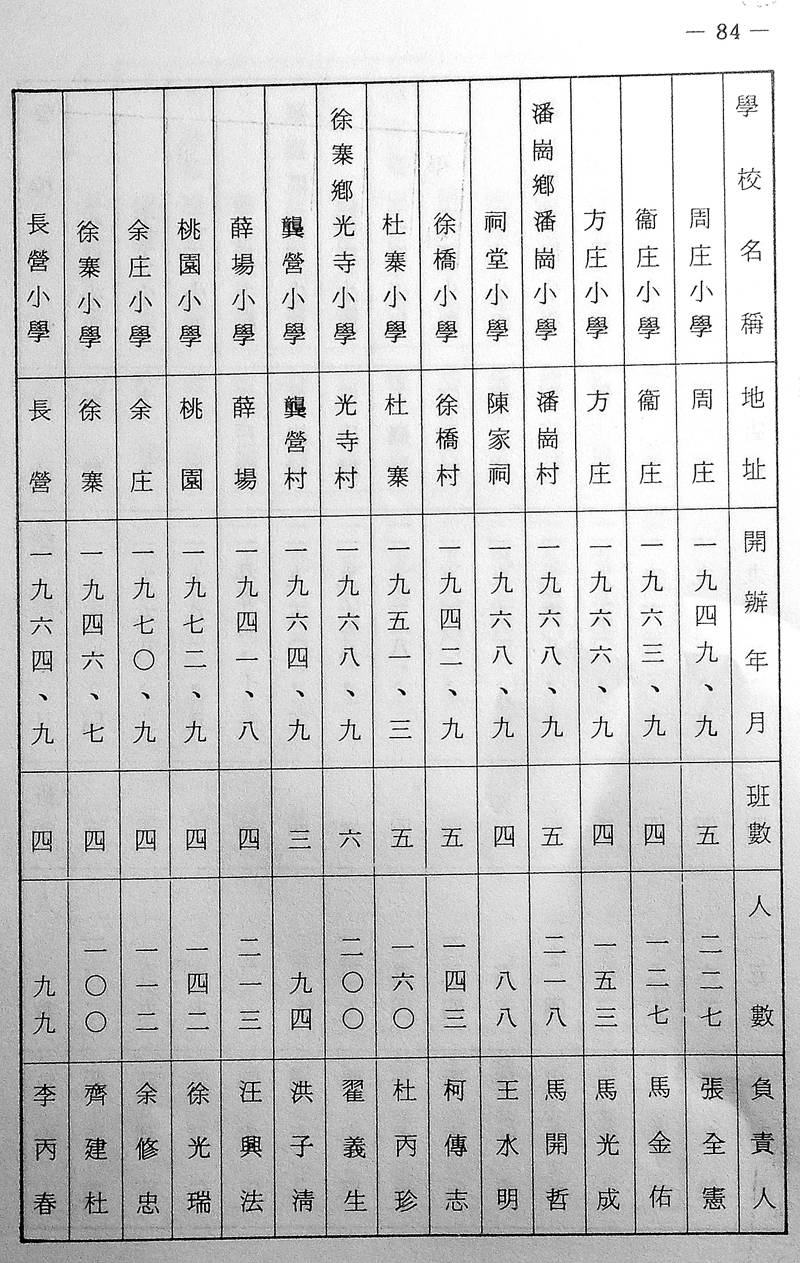 — 84 —
學校名稱 地址 開辦年月 班數 人數 負責人
周庄小學 周庄 一九四九、九 五 二二七 張全憲
衞庄小學 衞庄 一九六三、九 四 一二七 馬金佑
方庄小學 方庄 一九六六、九 四 一五三 馬光成
潘崗鄉潘崗小學 潘崗村 一九六八、九 五 二一八 馬開哲
祠堂小學 陳家祠 一九六八、九 四 八八 王水明
徐橋小學 徐橋村 一九四二、九 五 一四三 柯傳志
杜寨小學 杜寨 一九五一、三 五 一六〇 杜丙珍
徐寨鄉光寺小學 光寺村 一九六八、九 六 二〇〇 翟義生
龔營小學 龔營村 一九六四、九 三 九四 洪子清
薛場小學 薛場 一九四一、八 四 二一三 汪興法
桃園小學 桃園 一九七二、九 四 一四二 徐光瑞
余庄小學 余庄 一九七〇、九 四 一一二 余修忠
徐寨小學 徐寨 一九四六、七 四 一〇〇 齊建杜
長營小學 長營 一九六四、九 四 九九 李丙春